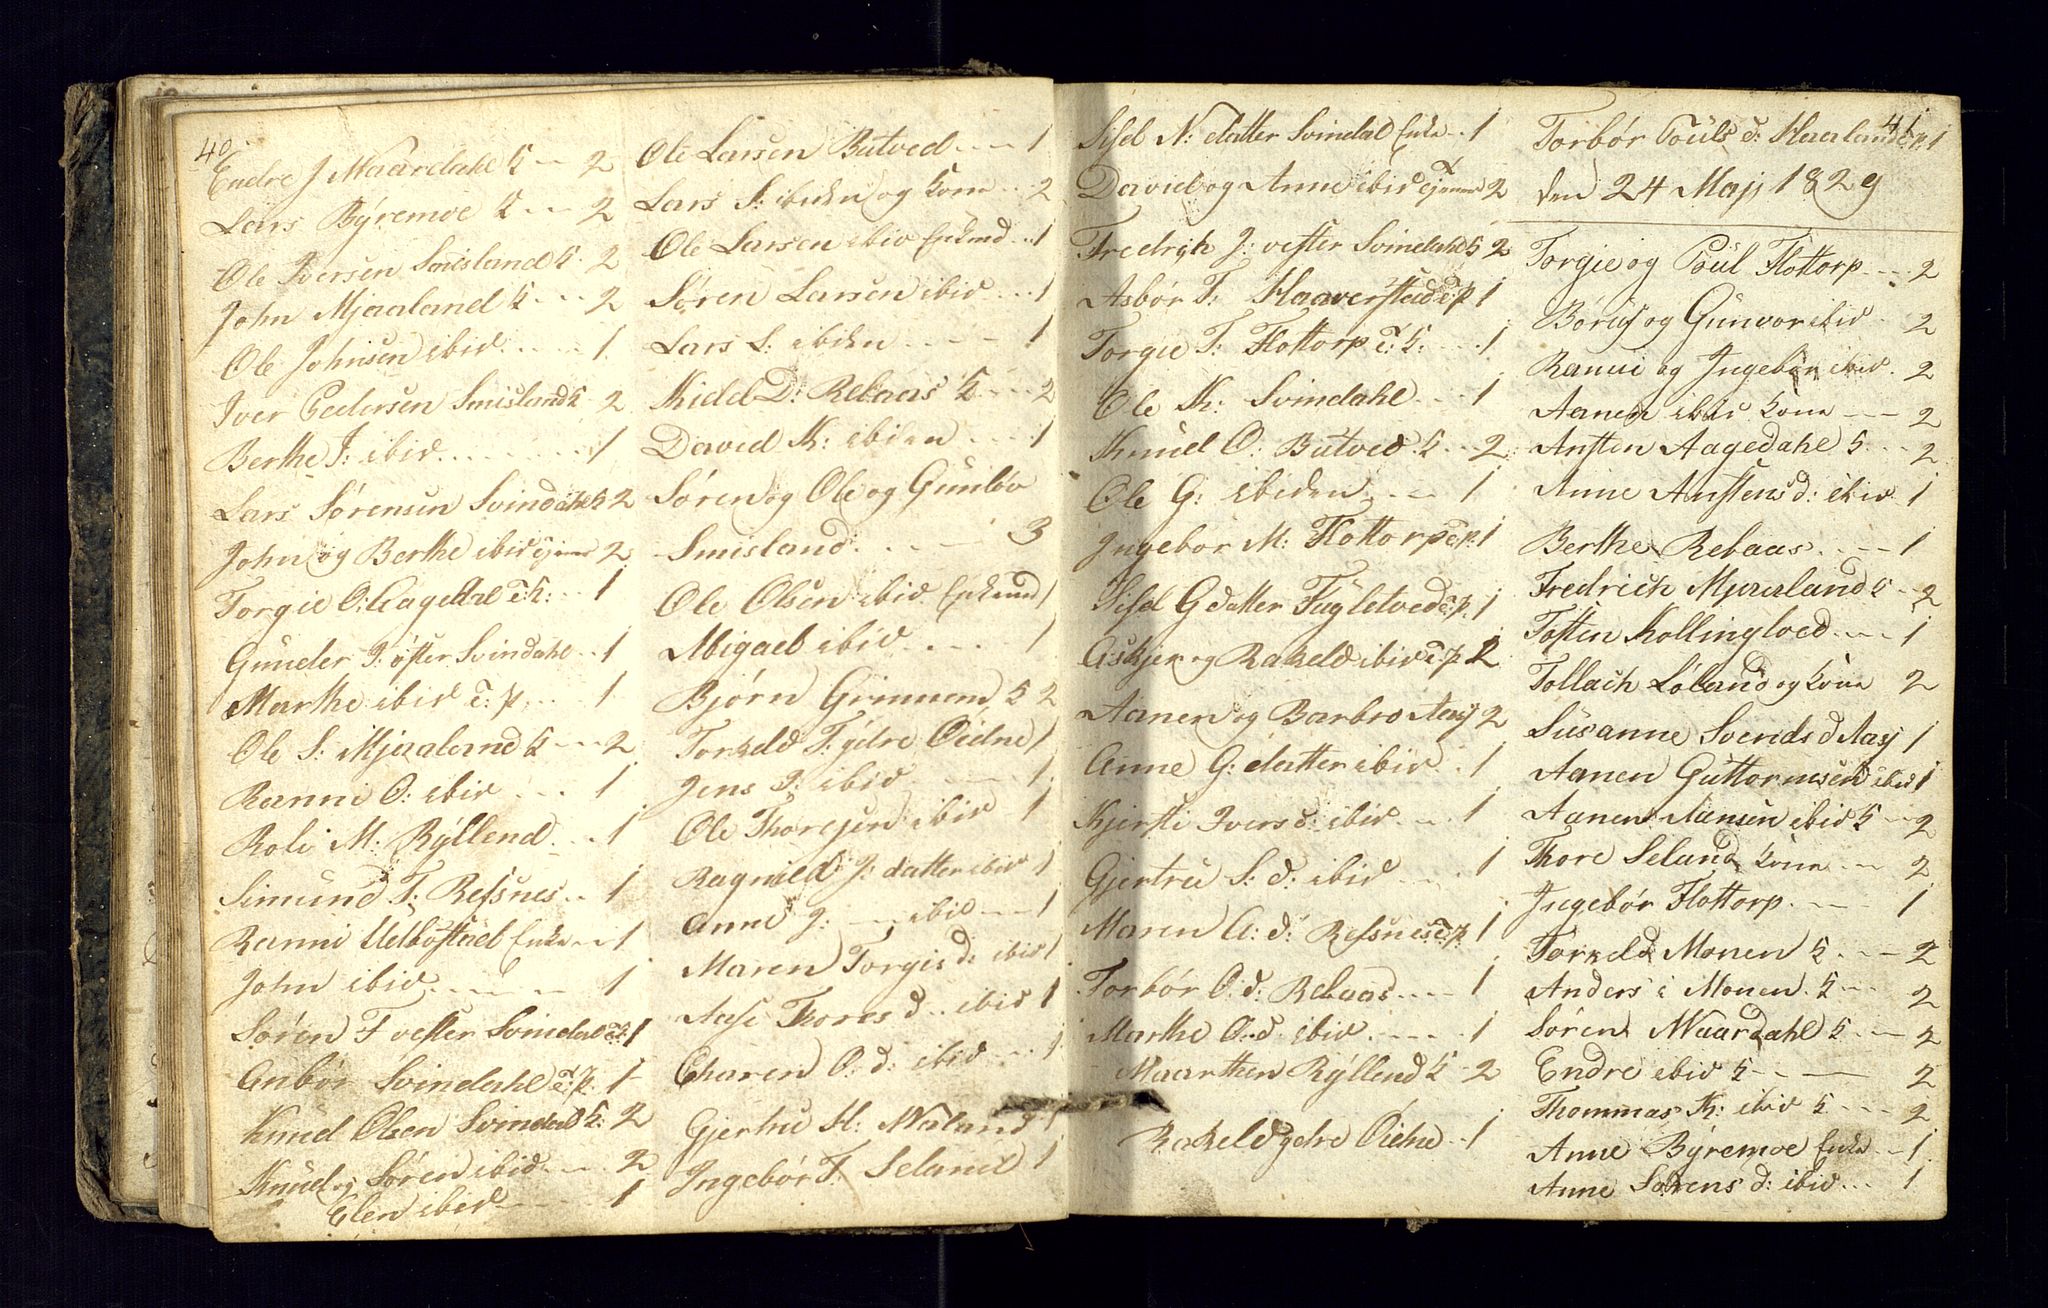 40.
Endre J Waardahl K -- 2
Lars Býremoe K -- 2
Ole Iversen Smisland K. 2
John Mjaaland K --- 2
Ole Johnsen ibid ---- 1
Iver Pedersen Smisland K 2
Berthe J: ibid ------ 1
Lars Sørensen Svindahl K 2
John og Berthe ibid 2
Torgie O: Aagedahl 1
Gunder J: øster Svindahl -- 1
Marthe ibid 1
Ole S: Mjaaland K --- 2
Ranni O: ibid --- 1
Roli M: Rýllend --- 1
Simund T: Refsnes -- 1
Ranni Uelbøstad Enke -- 1
John ibid ----- 1
Søren F vester Svindal 1
Anbør Svindahl 1
Knud Olsen Svindal K: 2
Knud og Søren ibid --- 2
Elen ibid ---- 1
Ole Larsen Butved --- 1
Lars S: ibiden og kone --- 2
Ole Larsen ibid Enkmd -- 1
Søren Larsen ibid --- 1
Lars L: ibiden ---- 1
Kidel D: Rebaas K --- 2
David K: ibiden --- 1
Søren og Ole og Gunløv
Smisland ---- 3
Ole Olsen ibid Enkemd 1
Abigael ibid ---- 1
Bjørn Grimnem K 2
Torkeld T: ýdre Øidne 1
Jens J: ibid --- 1
Ole Thoresen ibid 1
Ragnild J: datter ibid 1
Anne J: --- ibid --- 1
Maren Torgis d: ibid 1
Aase Thores d.. ibid 1
Charen O: d: ibid --- 1
Gjertru H: 1
Ingebør T: Seland 1
41
Sisel N: datter Svindal Enke -- 1
David og Anne ibid 2
Fredrich J: vester Svindahl K 2
Asbør T: Haaverstad 1
Torgie T: Flottorp 1
Ole K: Svindahl --- 1
Knud O: Butved K --- 2
Ole G: ibiden --- 1
Ingebor M: Flottorp 1
Sisel G datter Fugletved 1
Askjer og Rakeld ibid 2
Aanen og Barbro Aasj 2
Anne G: datter ibid . 1
Kjersti Ivers d: ibid --- 1
Gjertru S: d: ibid --- 1
Maren A: d: Refsnes 1
Torbør O: d: Rebaas --- 1
Marthe O: d ibid ---- 1
Maarthen Rýllend K - 2
Rakeld ydre Øidne -- 1
Torbør Pouls d: Haaland 1
den 24 Maj 1829
Torgie og Poul Flottorp --- 2
Børuf og Gunvor ibid 2
Ranni og Ingebør ibid . 2
Aanen ibid kone --- 2
Ansten Aagedahl K --- 2
Anne Anstens d: ibid 1
Berthe Rebaas ---- 1
Fredrich Mjaaland K -- 2
Tosten Kollingtved --- 1
Tollach Løland og kone 2
Susanne Svends d Aasj 1
Aanen Guttormsen ibid 1
Aanen Aansen ibid K -- 2
Thore Seland kone -- 2
Ingebør Flottorp ---- 1
Torkeld Monen K --- 2
Anders i Monen . K --- 2
Søren Waardahl K --- 2
Endre ibid K ---- 2
Thommas K: ibid K --- 2
Anne Býremoe Enke -- 1
Anne Sørens d: ibid --- 1